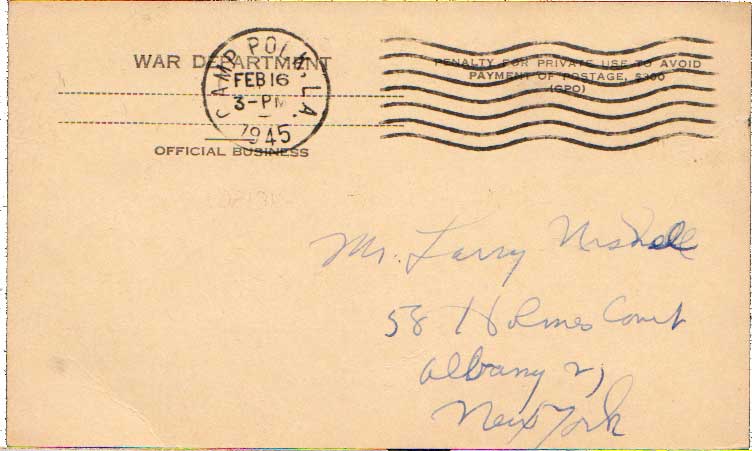 WAR DEPARTMENT
OFFICIAL BUSINESS
CAMP POLK, LA.
FEB 16
3-PM
1945
PENALTY FOR PRIVATE USE TO AVOID
PAYMENT OF POSTAGE, $300
(GPO)
Mr. Larry
58 Holmes Court
Albany
New York